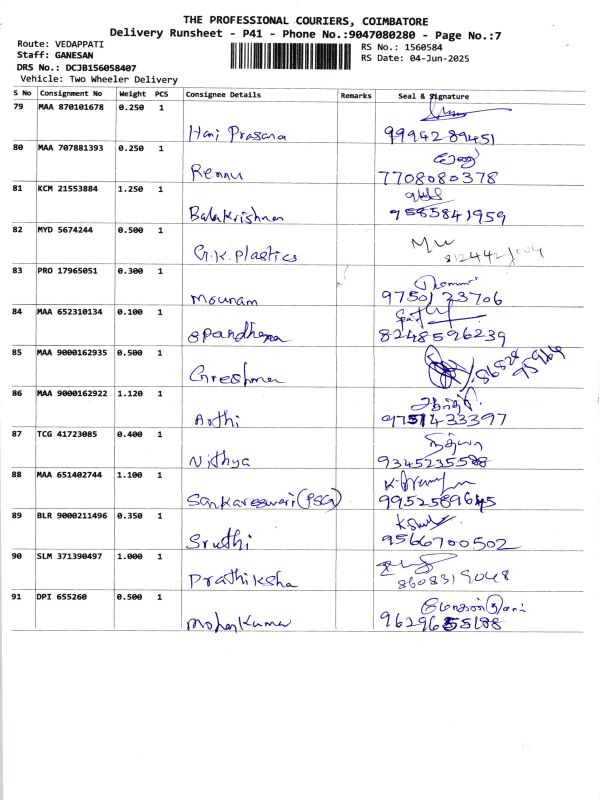 THE PROFESSIONAL COURIERS, COIMBATORE
Delivery Runsheet - P41 - Phone No.:9047080280 - Page No.:7
Route: VEDAPPATI
Staff: GANESAN
DRS No.: DCJB156058407
Vehicle: Two Wheeler Delivery
RS No.: 1560584
RS Date: 04-Jun-2025
S No Consignment No Weight PCS Consignee Details Remarks Seal & Signature
79 MAA 870101678 0.250 1
Hari Prasana 9994289451
80 MAA 707881393 0.250 1
Rennu 7708080378
81 KCM 21553884 1.250 1
Balakrishnan 9585841959
82 MYD 5674244 0.500 1
G.K.Plastics
83 PRO 17965051 0.300 1
Mounam 9750123706
84 MAA 652310134 0.100 1
Spandhana 8248596239
85 MAA 9000162935 0.500 1
Greshma 86828 95966
86 MAA 9000162922 1.120 1
ஆர்த்தி
Arthi 9751433397
87 TCG 41723085 0.400 1
நித்யா
Nithya 9345235588
88 MAA 651402744 1.100 1
Sankareswari (PSG) 9952589645
89 BLR 9000211496 0.350 1
Sruthi 9566700502
90 SLM 371390497 1.000 1
Prathiksha 8608319048
91 DPI 655260 0.500 1
மோகன்குமார்
Mohankumar 9629655188